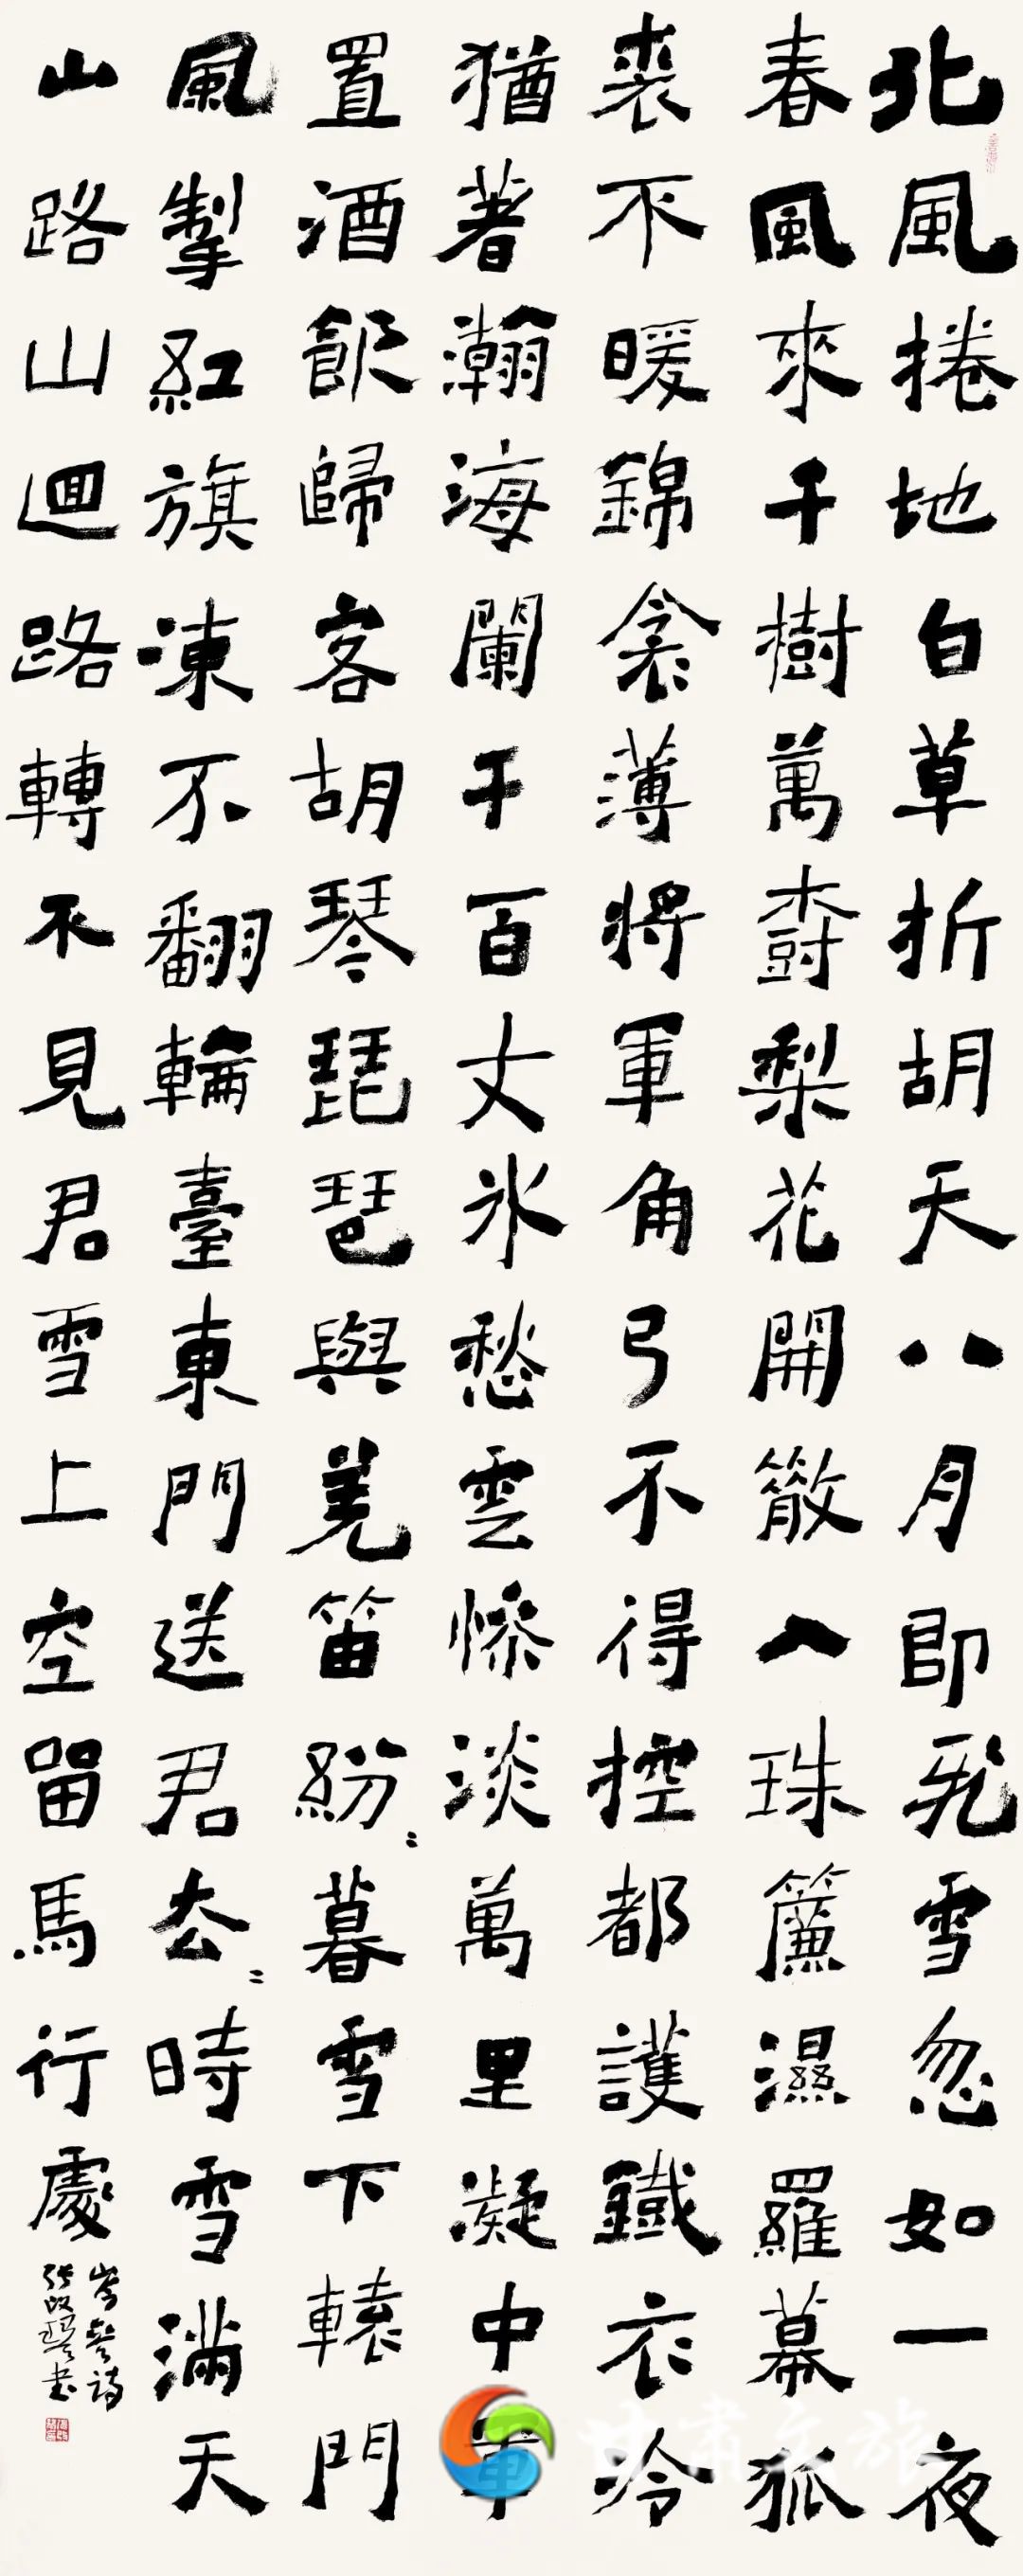 北風捲地白草折胡天八月即飛雪忽如一夜
春風來千樹萬樹梨花開散入珠簾濕羅幕狐
裘不暖錦衾薄將軍角弓不得控都護鐵衣冷
猶著瀚海闌干百丈冰愁雲慘淡萬里凝中軍
置酒飲歸客胡琴琵琶與羌笛紛〻暮雪下轅門
風掣紅旗凍不翻輪臺東門送君去〻時雪滿天
山路山迴路轉不見君雪上空留馬行處
岑參詩
張改琴書
甘肅文旅